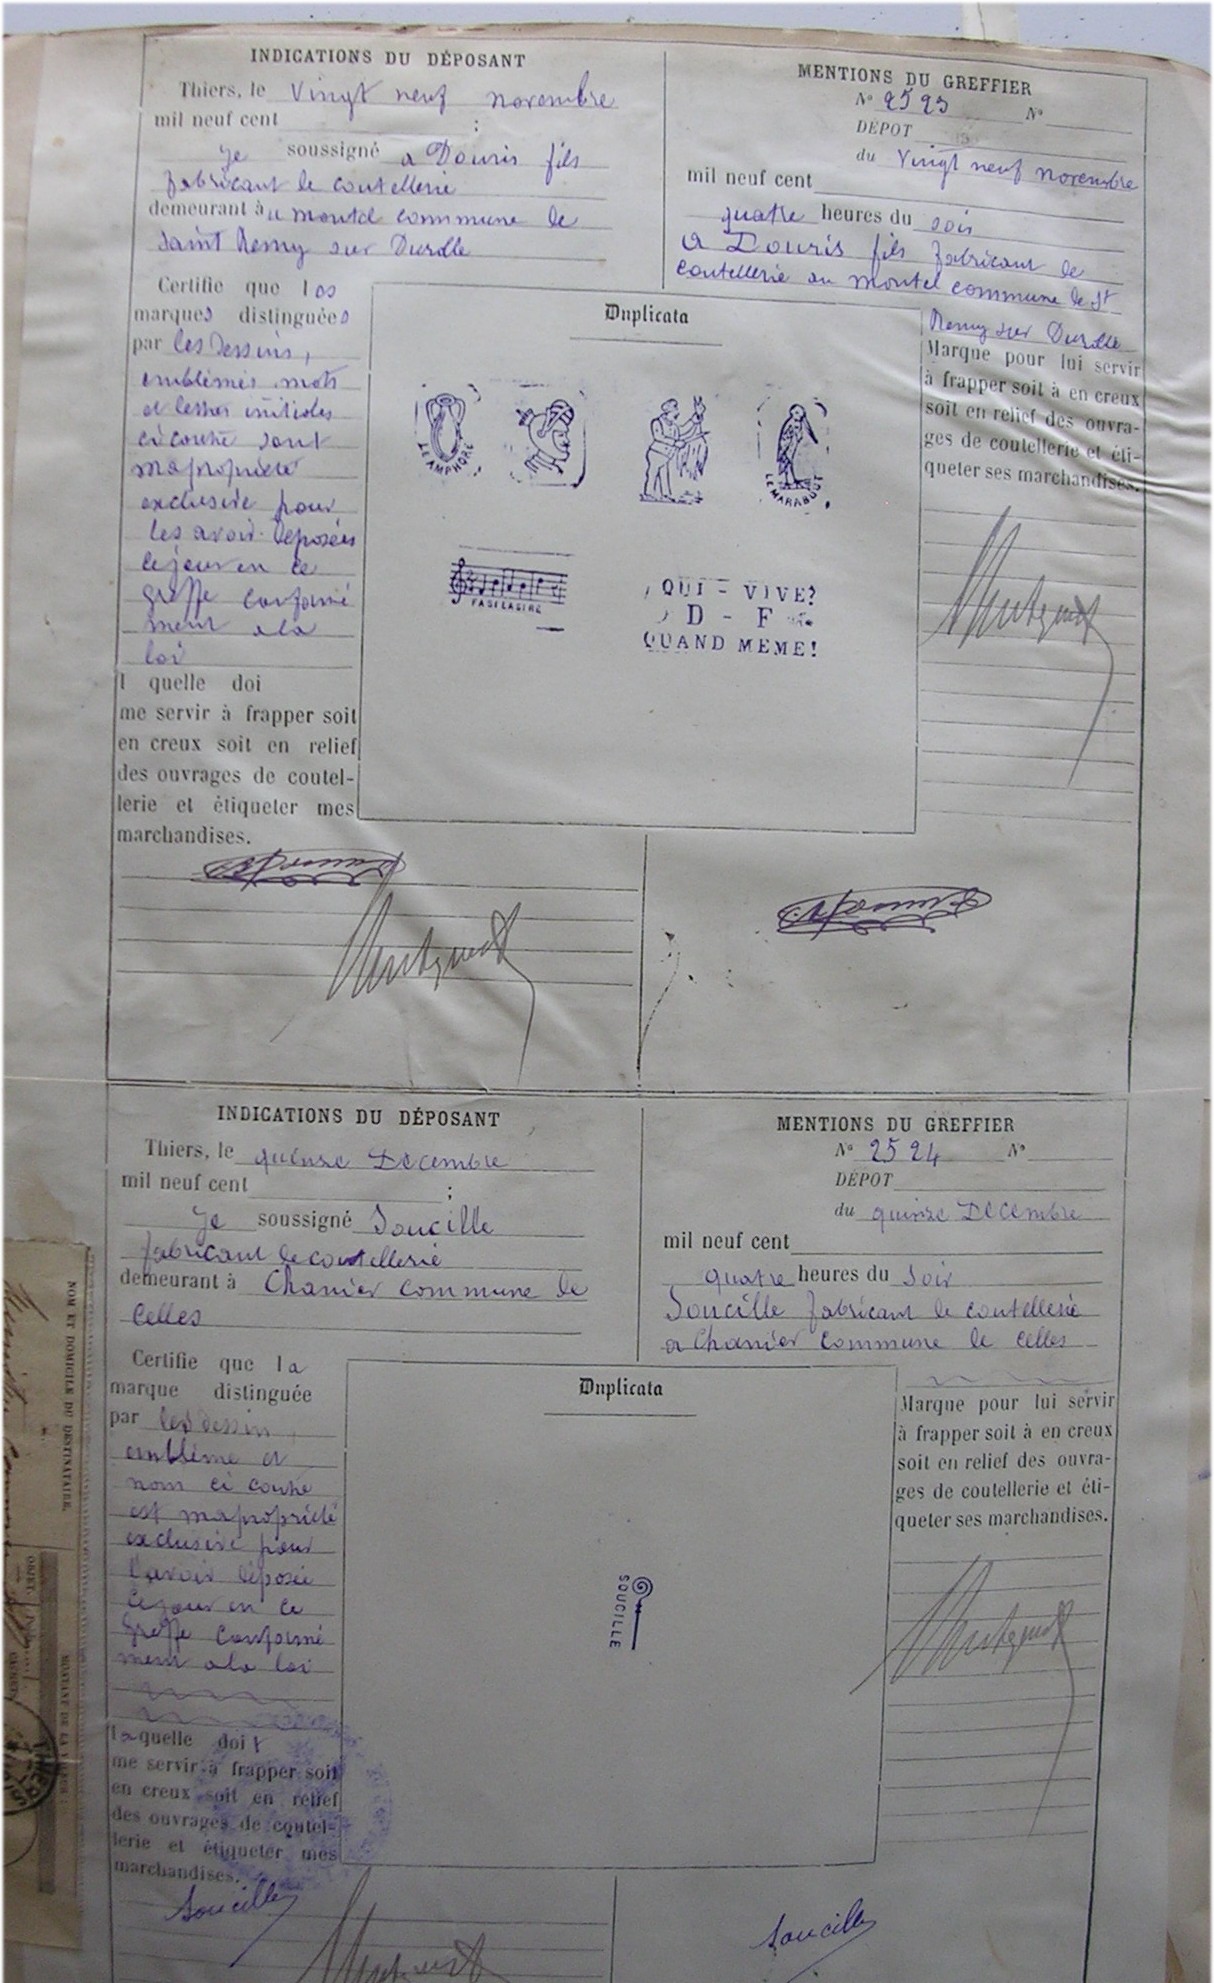 INDICATIONS DU DÉPOSANT
Thiers, le vingt neuf novembre
mil neuf cent ;
je soussigné a Douris fils
fabricant de coutellerie
demeurant à u montel commune de
Saint Remy sur Durolle
Certifie que les
marques distinguées
par les Dessins,
emblèmes mots
et lettres initiales
ci contre sont
ma propriété
exclusive pour
les avoir déposées
ce jour en ce
greffe conformé
ment a la
loi
l quelle doi
me servir à frapper soit
en creux soit en relief
des ouvrages de coutel-
lerie et étiqueter mes
marchandises.
MENTIONS DU GREFFIER
N° 2523 N°
DÉPOT
du vingt neuf novembre
mil neuf cent
quatre heures du soir
a Douris fils fabricant de
coutellerie au montel commune de St
Remy sur Durolle
Marque pour lui servir
à frapper soit à en creux
soit en relief des ouvra-
ges de coutellerie et éti-
queter ses marchandises.
Duplicata
LE AMPHORE
LE MARABOUT
FA SI LA SI RE
QUI - VIVE?
D - F
QUAND MEME!
INDICATIONS DU DÉPOSANT
Thiers, le quinze Decembre
mil neuf cent ;
Je soussigné Soucille
fabricant de coutellerie
demeurant à Chanier commune de
Celles
Certifie que la
marque distinguée
par les dessin,
emblème et
nom ci contre
est ma propriété
exclusive pour
l'avoir déposée
ce jour en ce
Greffe conformé
ment a la loi
laquelle doit
me servir à frapper soit
en creux soit en relief
des ouvrages de coutel-
lerie et étiqueter mes
marchandises.
Soucille
MENTIONS DU GREFFIER
N° 2524 N°
DÉPOT
du quinze Decembre
mil neuf cent
quatre heures du soir
Soucille fabricant de coutellerie
a Chanier commune de Celles
Marque pour lui servir
à frapper soit à en creux
soit en relief des ouvra-
ges de coutellerie et éti-
queter ses marchandises.
Duplicata
SOUCILLE
Soucille
NOM ET DOMICILE DU DESTINATAIRE.
THIERS